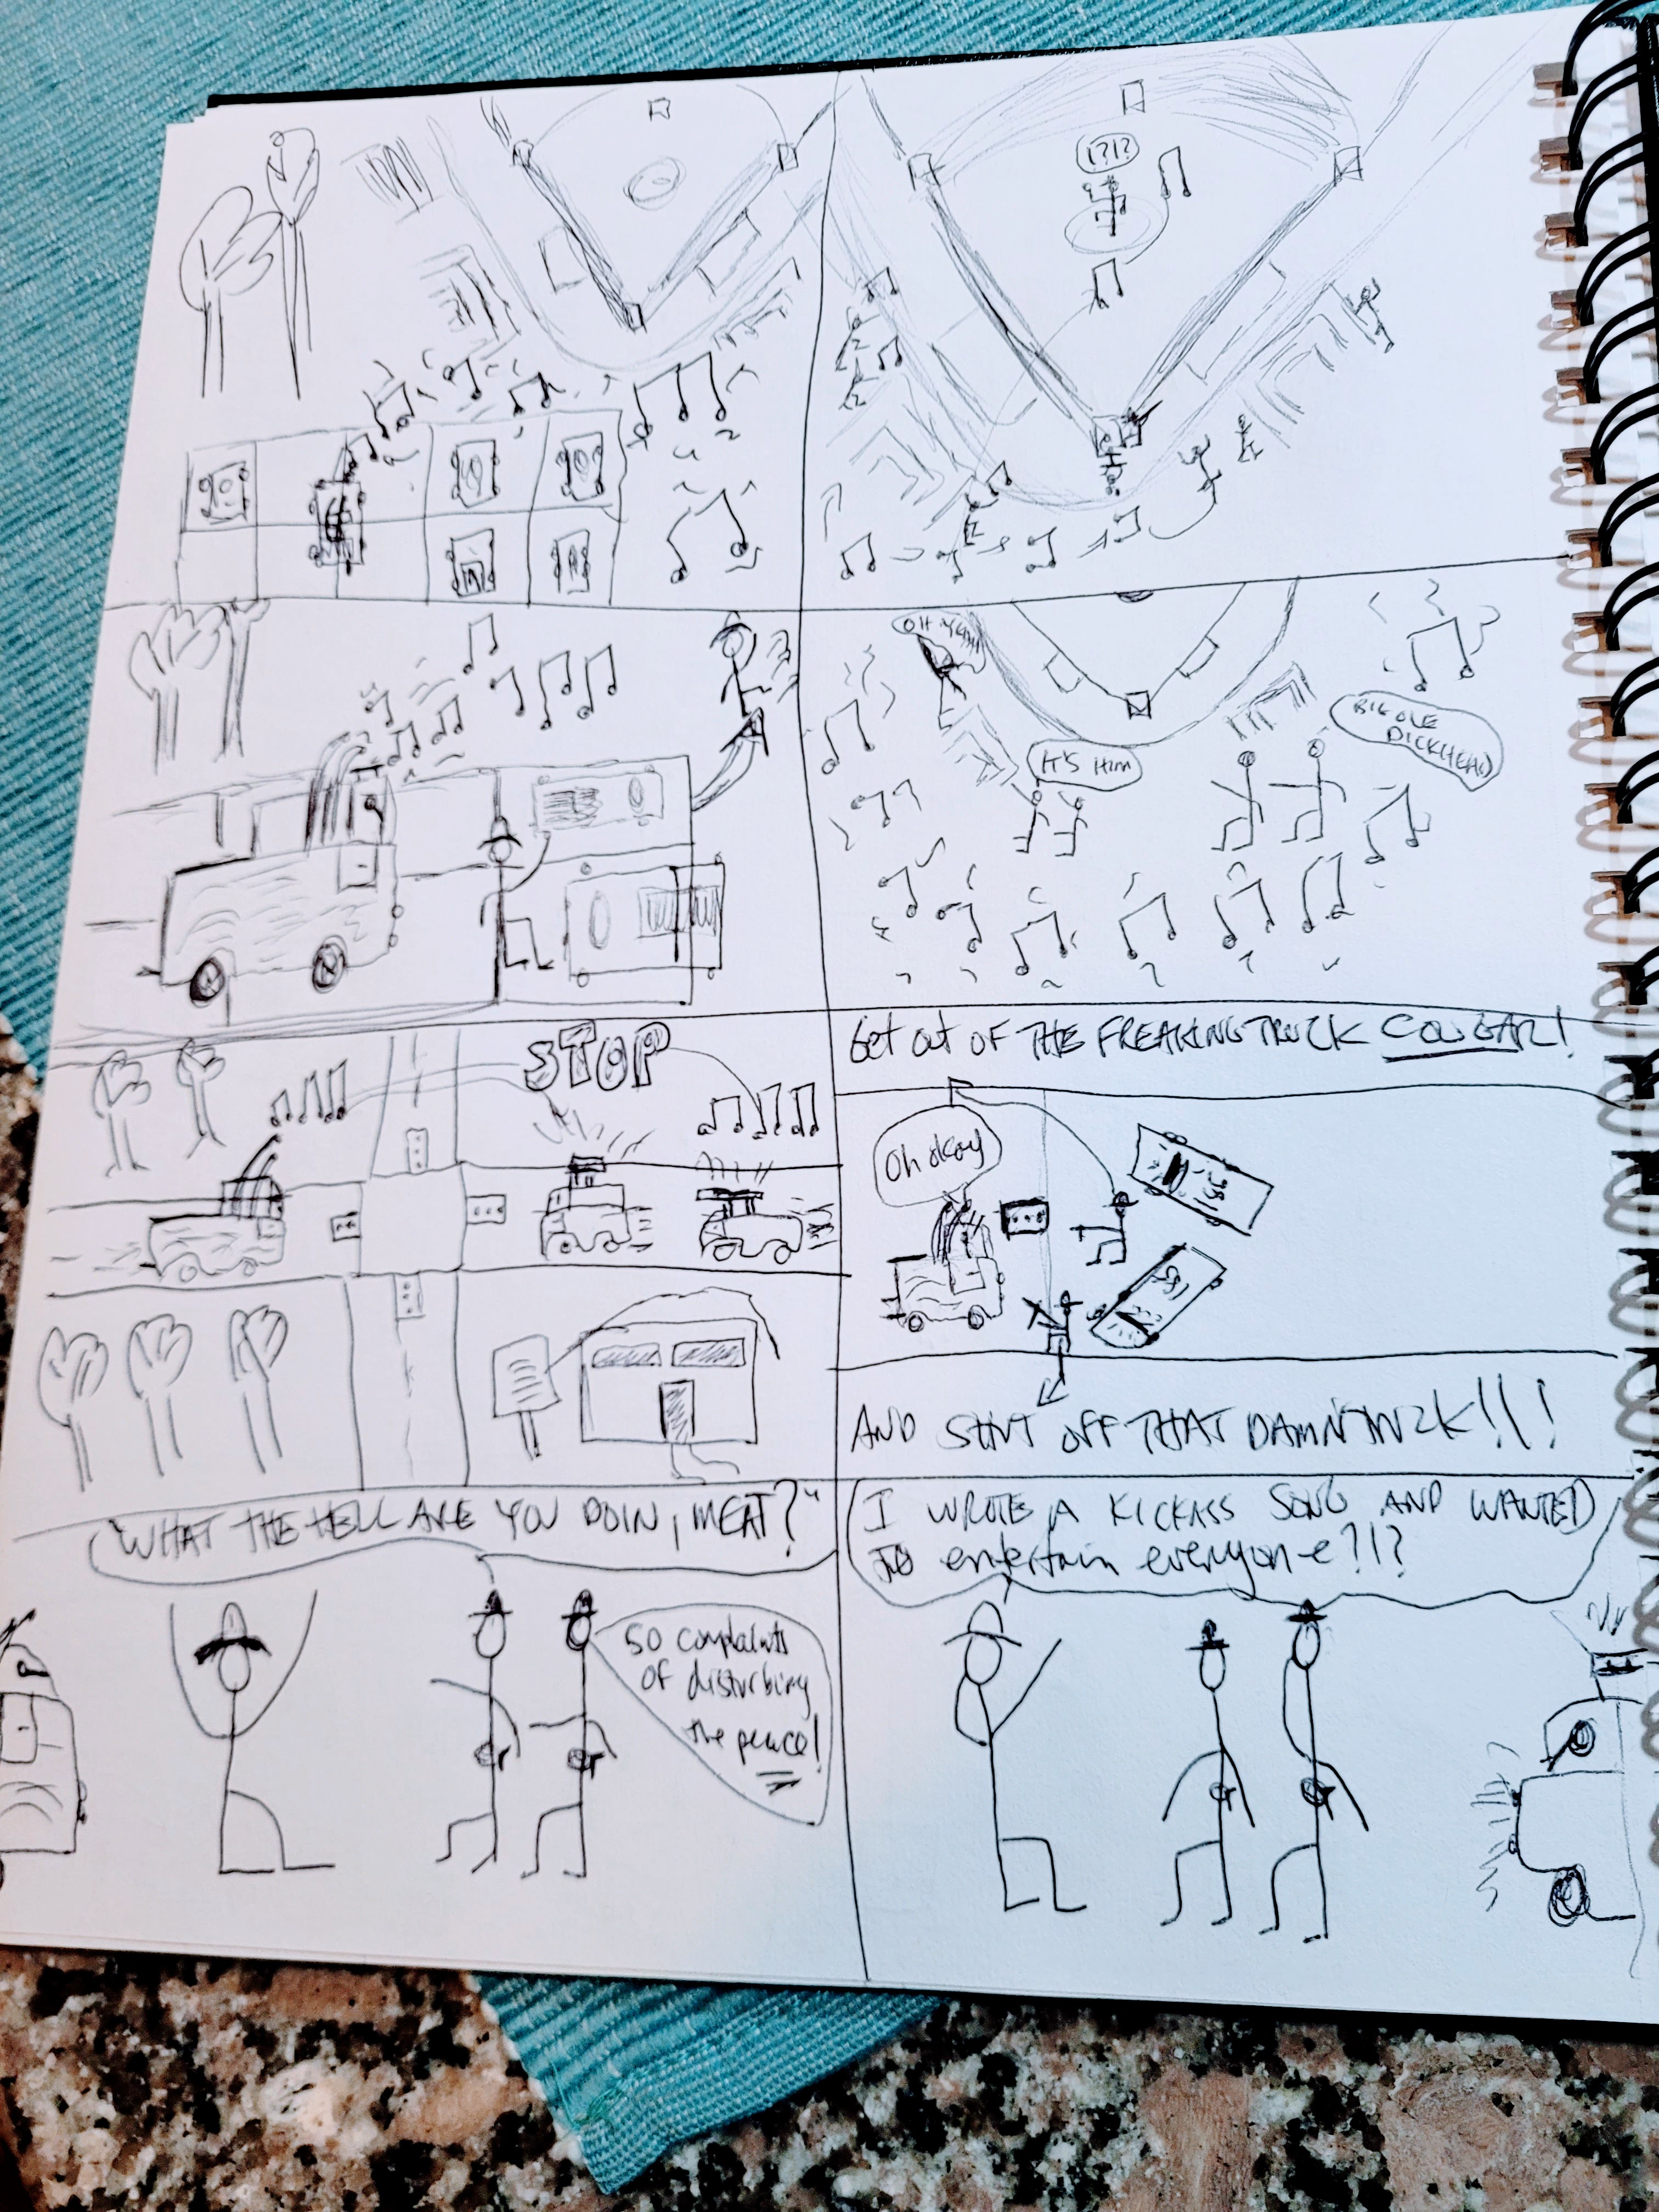 !?!?
IT'S HIM
BIG OLE
DICKHEAD
STOP
Get out OF THE FREAKING TRUCK COUGAR!
Oh okay
AND SHUT OFF THAT DAMN TRUCK!!!
WHAT THE HELL ARE YOU DOIN, MEAT?"
50 complaints
OF disturbing
the peace!
I WROTE A KICKASS SONG AND WANTED
TO entertain everyone?!?